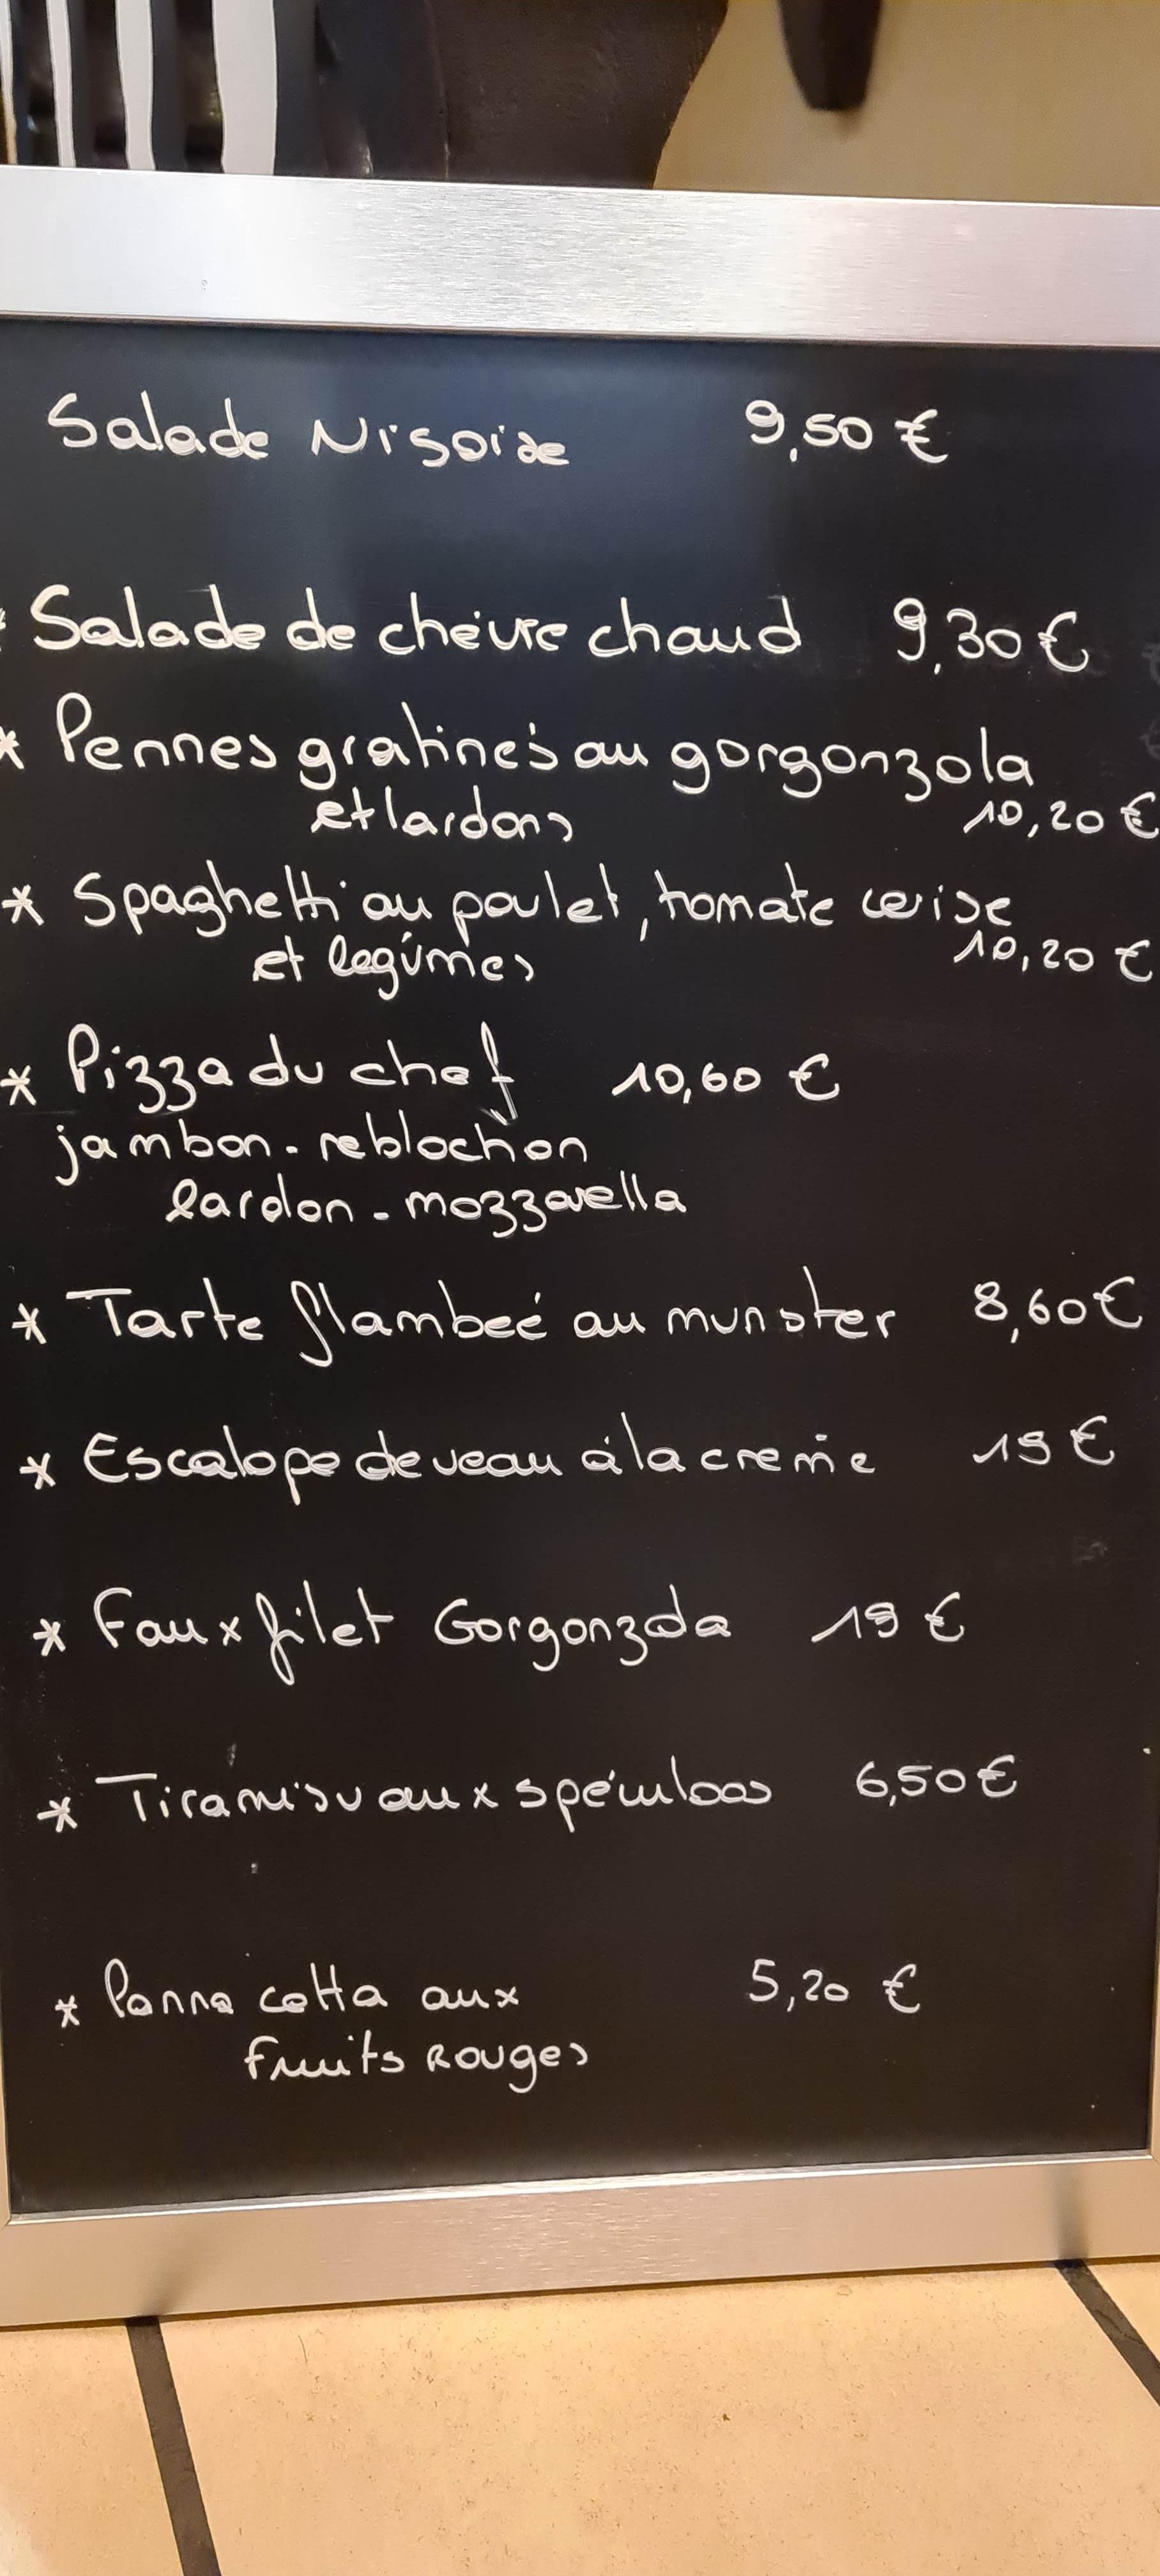 Salade Nisoise 9,50 €
* Salade de chèvre chaud 9,30 €
* Pennes gratinés au gorgonzola
et lardons 10,20 €
* Spaghetti au poulet, tomate cerise
et legúmes 10,20 €
* Pizza du chef 10,60 €
jambon - reblochon
lardon - mozzarella
* Tarte flambeé au munster 8,60 €
* Escalope de veau à la creme 19 €
* Faux filet Gorgonzola 19 €
* Tiramisu aux spéculoos 6,50 €
* Panna cotta aux 5,20 €
fruits Rouges